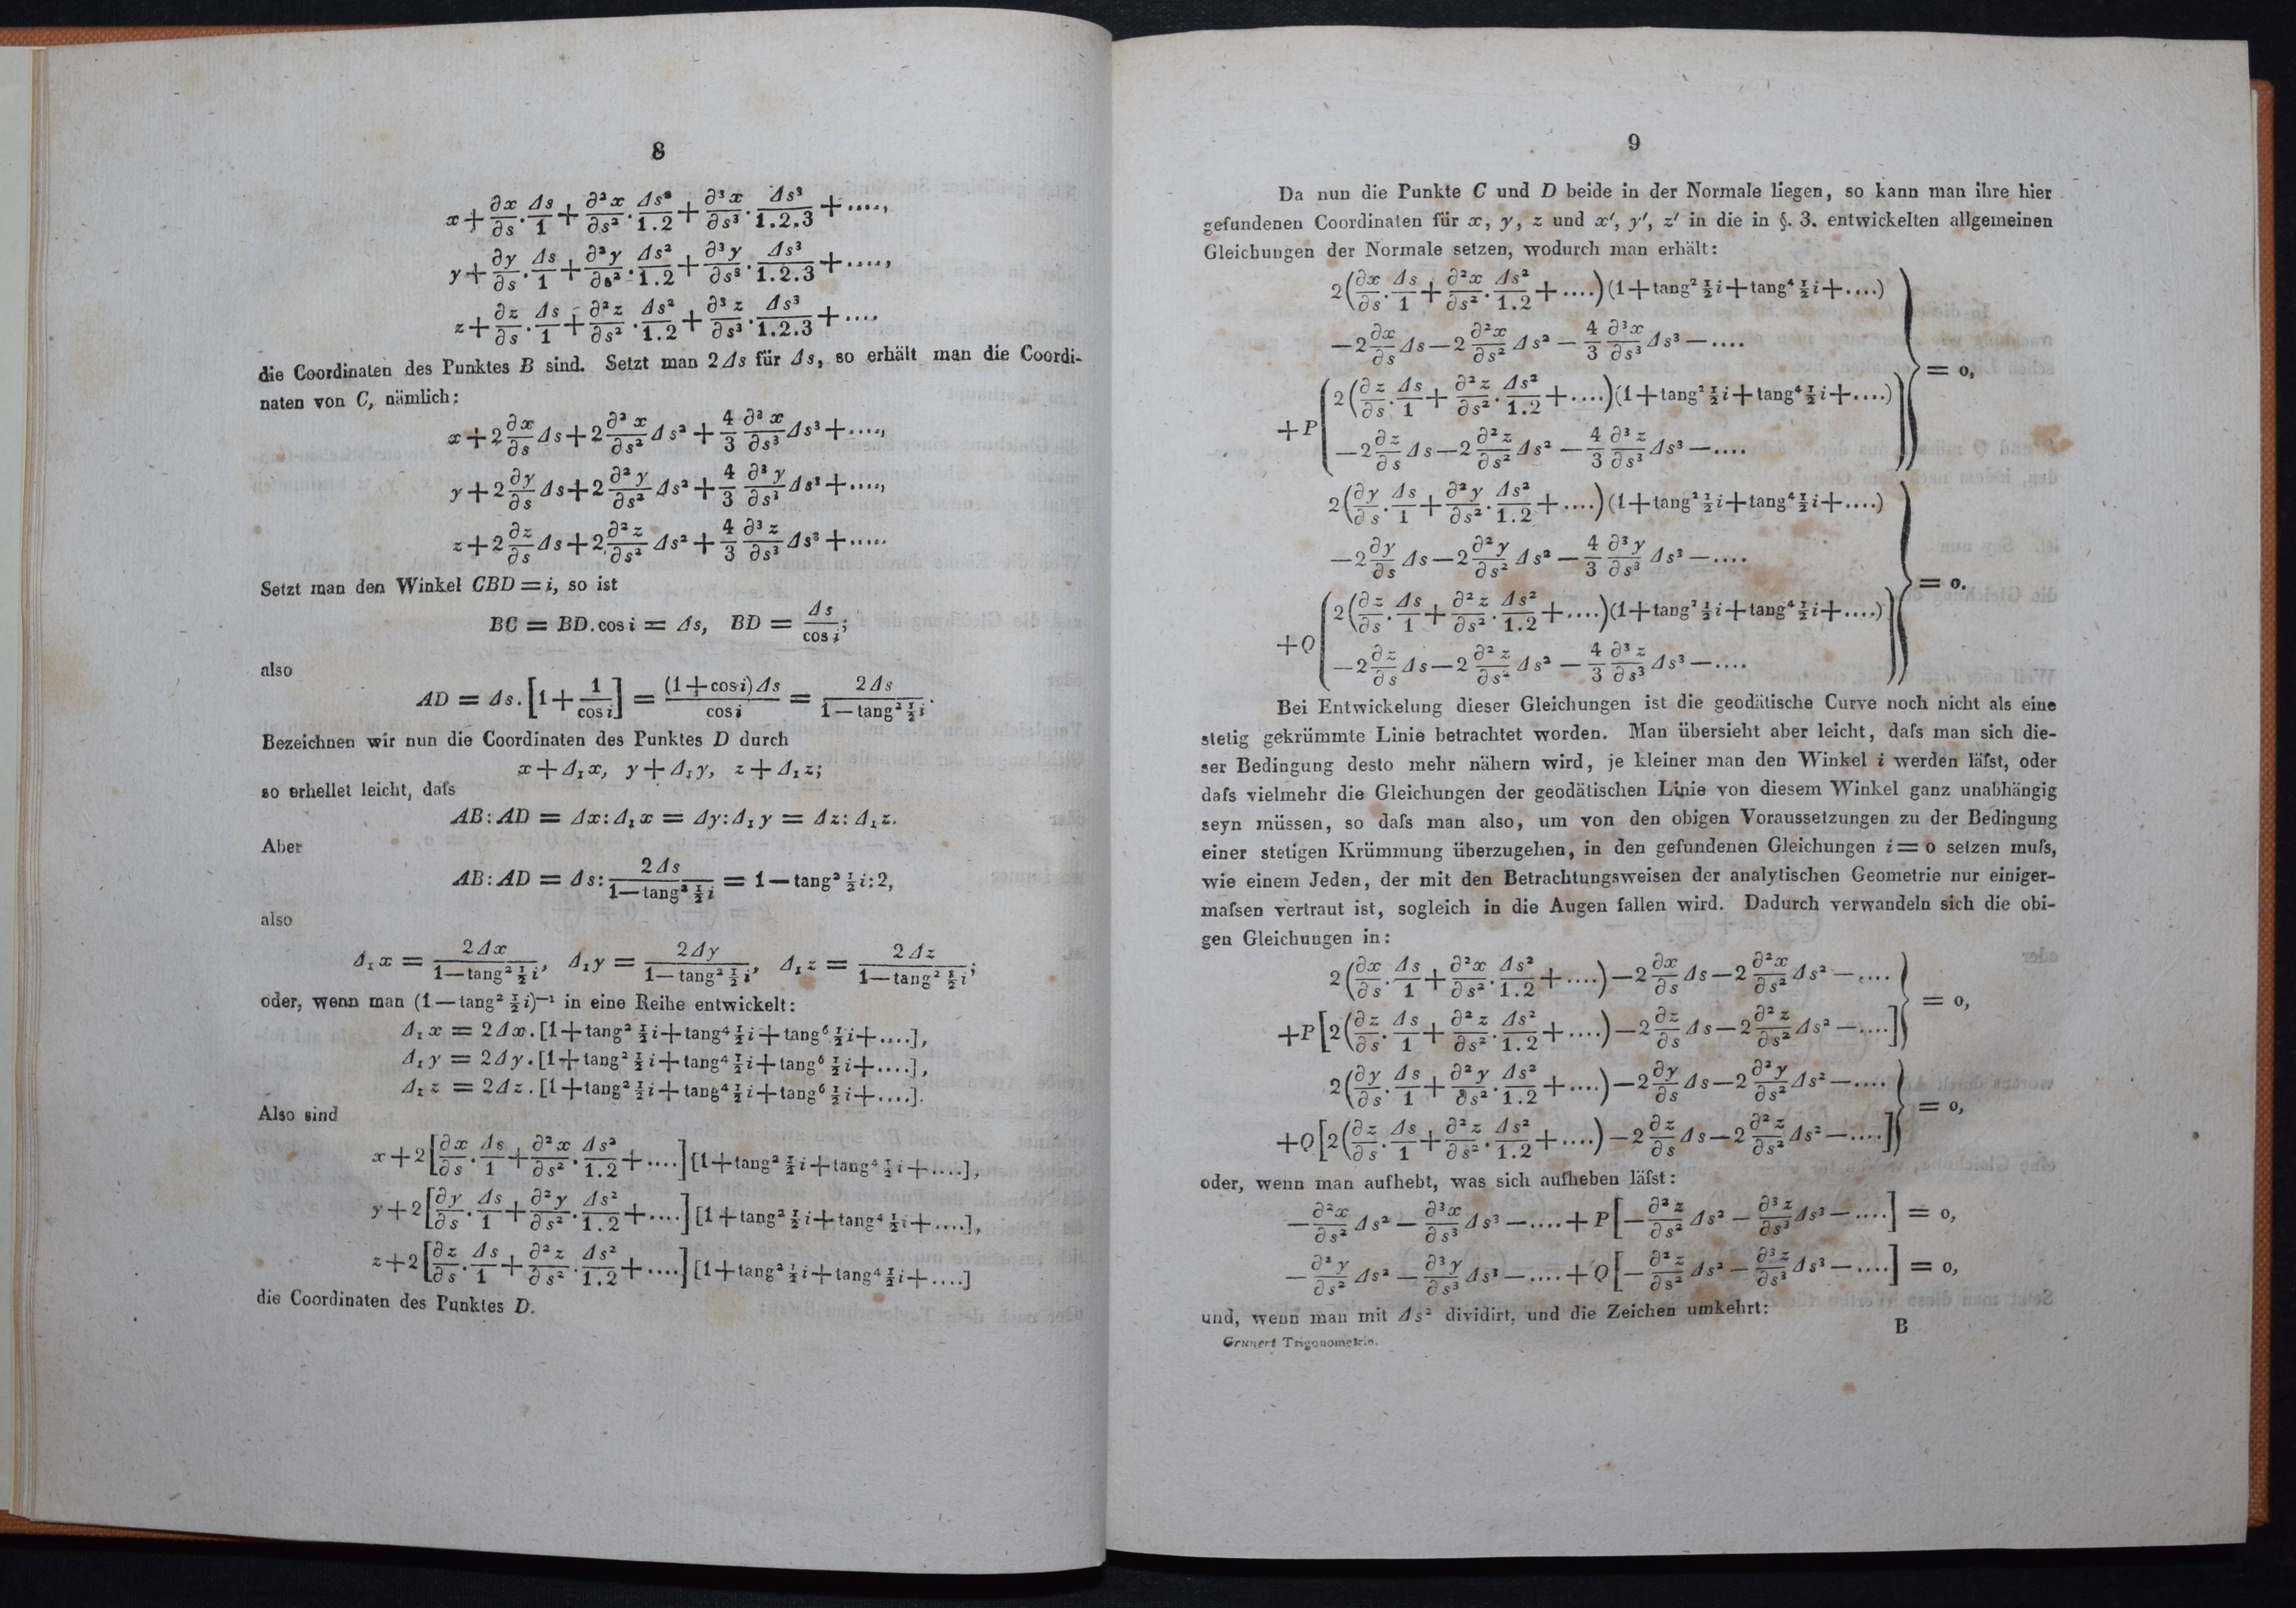 8
x + ∂x/∂s · Δs/1 + ∂²x/∂s² · Δs²/1.2 + ∂³x/∂s³ · Δs³/1.2.3 + ....,
y + ∂y/∂s · Δs/1 + ∂²y/∂s² · Δs²/1.2 + ∂³y/∂s³ · Δs³/1.2.3 + ....,
z + ∂z/∂s · Δs/1 + ∂²z/∂s² · Δs²/1.2 + ∂³z/∂s³ · Δs³/1.2.3 + ....
die Coordinaten des Punktes B sind. Setzt man 2Δs für Δs, so erhält man die Coordi-
naten von C, nämlich:
x + 2 ∂x/∂s Δs + 2 ∂²x/∂s² Δs² + 4/3 ∂³x/∂s³ Δs³ + ....,
y + 2 ∂y/∂s Δs + 2 ∂²y/∂s² Δs² + 4/3 ∂³y/∂s³ Δs³ + ....,
z + 2 ∂z/∂s Δs + 2 ∂²z/∂s² Δs² + 4/3 ∂³z/∂s³ Δs³ + .....
Setzt man den Winkel CBD = i, so ist
BC = BD.cos i = Δs, BD = Δs/cos i;
also
AD = Δs.[1 + 1/cos i] = (1 + cos i)Δs/cos i = 2Δs/(1 — tang² ½ i).
Bezeichnen wir nun die Coordinaten des Punktes D durch
x + Δ₁x, y + Δ₁y, z + Δ₁z;
so erhellet leicht, daſs
AB : AD = Δx : Δ₁x = Δy : Δ₁y = Δz : Δ₁z.
Aber
AB : AD = Δs : 2Δs/(1 — tang² ½ i) = 1 — tang² ½ i : 2,
also
Δ₁x = 2Δx/(1 — tang² ½ i), Δ₁y = 2Δy/(1 — tang² ½ i), Δ₁z = 2Δz/(1 — tang² ½ i);
oder, wenn man (1 — tang² ½ i)⁻¹ in eine Reihe entwickelt:
Δ₁x = 2Δx.[1 + tang² ½ i + tang⁴ ½ i + tang⁶ ½ i + ....],
Δ₁y = 2Δy.[1 + tang² ½ i + tang⁴ ½ i + tang⁶ ½ i + ....],
Δ₁z = 2Δz.[1 + tang² ½ i + tang⁴ ½ i + tang⁶ ½ i + ....].
Also sind
x + 2[∂x/∂s · Δs/1 + ∂²x/∂s² · Δs²/1.2 + ....][1 + tang² ½ i + tang⁴ ½ i + ....],
y + 2[∂y/∂s · Δs/1 + ∂²y/∂s² · Δs²/1.2 + ....][1 + tang² ½ i + tang⁴ ½ i + ....],
z + 2[∂z/∂s · Δs/1 + ∂²z/∂s² · Δs²/1.2 + ....][1 + tang² ½ i + tang⁴ ½ i + ....]
die Coordinaten des Punktes D.
9
Da nun die Punkte C und D beide in der Normale liegen, so kann man ihre hier
gefundenen Coordinaten für x, y, z und x′, y′, z′ in die in §. 3. entwickelten allgemeinen
Gleichungen der Normale setzen, wodurch man erhält:
2(∂x/∂s · Δs/1 + ∂²x/∂s² · Δs²/1.2 + ....)(1 + tang² ½ i + tang⁴ ½ i + ....)
— 2 ∂x/∂s Δs — 2 ∂²x/∂s² Δs² — 4/3 ∂³x/∂s³ Δs³ — ....
+ P (2(∂z/∂s · Δs/1 + ∂²z/∂s² · Δs²/1.2 + ....)(1 + tang² ½ i + tang⁴ ½ i + ....)
— 2 ∂z/∂s Δs — 2 ∂²z/∂s² Δs² — 4/3 ∂³z/∂s³ Δs³ — ....)} = 0,
2(∂y/∂s · Δs/1 + ∂²y/∂s² · Δs²/1.2 + ....)(1 + tang² ½ i + tang⁴ ½ i + ....)
— 2 ∂y/∂s Δs — 2 ∂²y/∂s² Δs² — 4/3 ∂³y/∂s³ Δs³ — ....
+ Q (2(∂z/∂s · Δs/1 + ∂²z/∂s² · Δs²/1.2 + ....)(1 + tang² ½ i + tang⁴ ½ i + ....)
— 2 ∂z/∂s Δs — 2 ∂²z/∂s² Δs² — 4/3 ∂³z/∂s³ Δs³ — ....)} = 0.
Bei Entwickelung dieser Gleichungen ist die geodätische Curve noch nicht als eine
stetig gekrümmte Linie betrachtet worden. Man übersieht aber leicht, daſs man sich die-
ser Bedingung desto mehr nähern wird, je kleiner man den Winkel i werden läſst, oder
daſs vielmehr die Gleichungen der geodätischen Linie von diesem Winkel ganz unabhängig
seyn müssen, so daſs man also, um von den obigen Voraussetzungen zu der Bedingung
einer stetigen Krümmung überzugehen, in den gefundenen Gleichungen i = 0 setzen muſs,
wie einem Jeden, der mit den Betrachtungsweisen der analytischen Geometrie nur einiger-
maſsen vertraut ist, sogleich in die Augen fallen wird. Dadurch verwandeln sich die obi-
gen Gleichungen in:
2(∂x/∂s · Δs/1 + ∂²x/∂s² · Δs²/1.2 + ....) — 2 ∂x/∂s Δs — 2 ∂²x/∂s² Δs² — ....
+ P[2(∂z/∂s · Δs/1 + ∂²z/∂s² · Δs²/1.2 + ....) — 2 ∂z/∂s Δs — 2 ∂²z/∂s² Δs² — ....]} = 0,
2(∂y/∂s · Δs/1 + ∂²y/∂s² · Δs²/1.2 + ....) — 2 ∂y/∂s Δs — 2 ∂²y/∂s² Δs² — ....
+ Q[2(∂z/∂s · Δs/1 + ∂²z/∂s² · Δs²/1.2 + ....) — 2 ∂z/∂s Δs — 2 ∂²z/∂s² Δs² — ....]} = 0,
oder, wenn man aufhebt, was sich aufheben läſst:
— ∂²x/∂s² Δs² — ∂³x/∂s³ Δs³ — .... + P[— ∂²z/∂s² Δs² — ∂³z/∂s³ Δs³ — ....] = 0,
— ∂²y/∂s² Δs² — ∂³y/∂s³ Δs³ — .... + Q[— ∂²z/∂s² Δs² — ∂³z/∂s³ Δs³ — ....] = 0,
und, wenn man mit Δs² dividirt, und die Zeichen umkehrt:
Grunert Trigonometrie.
B